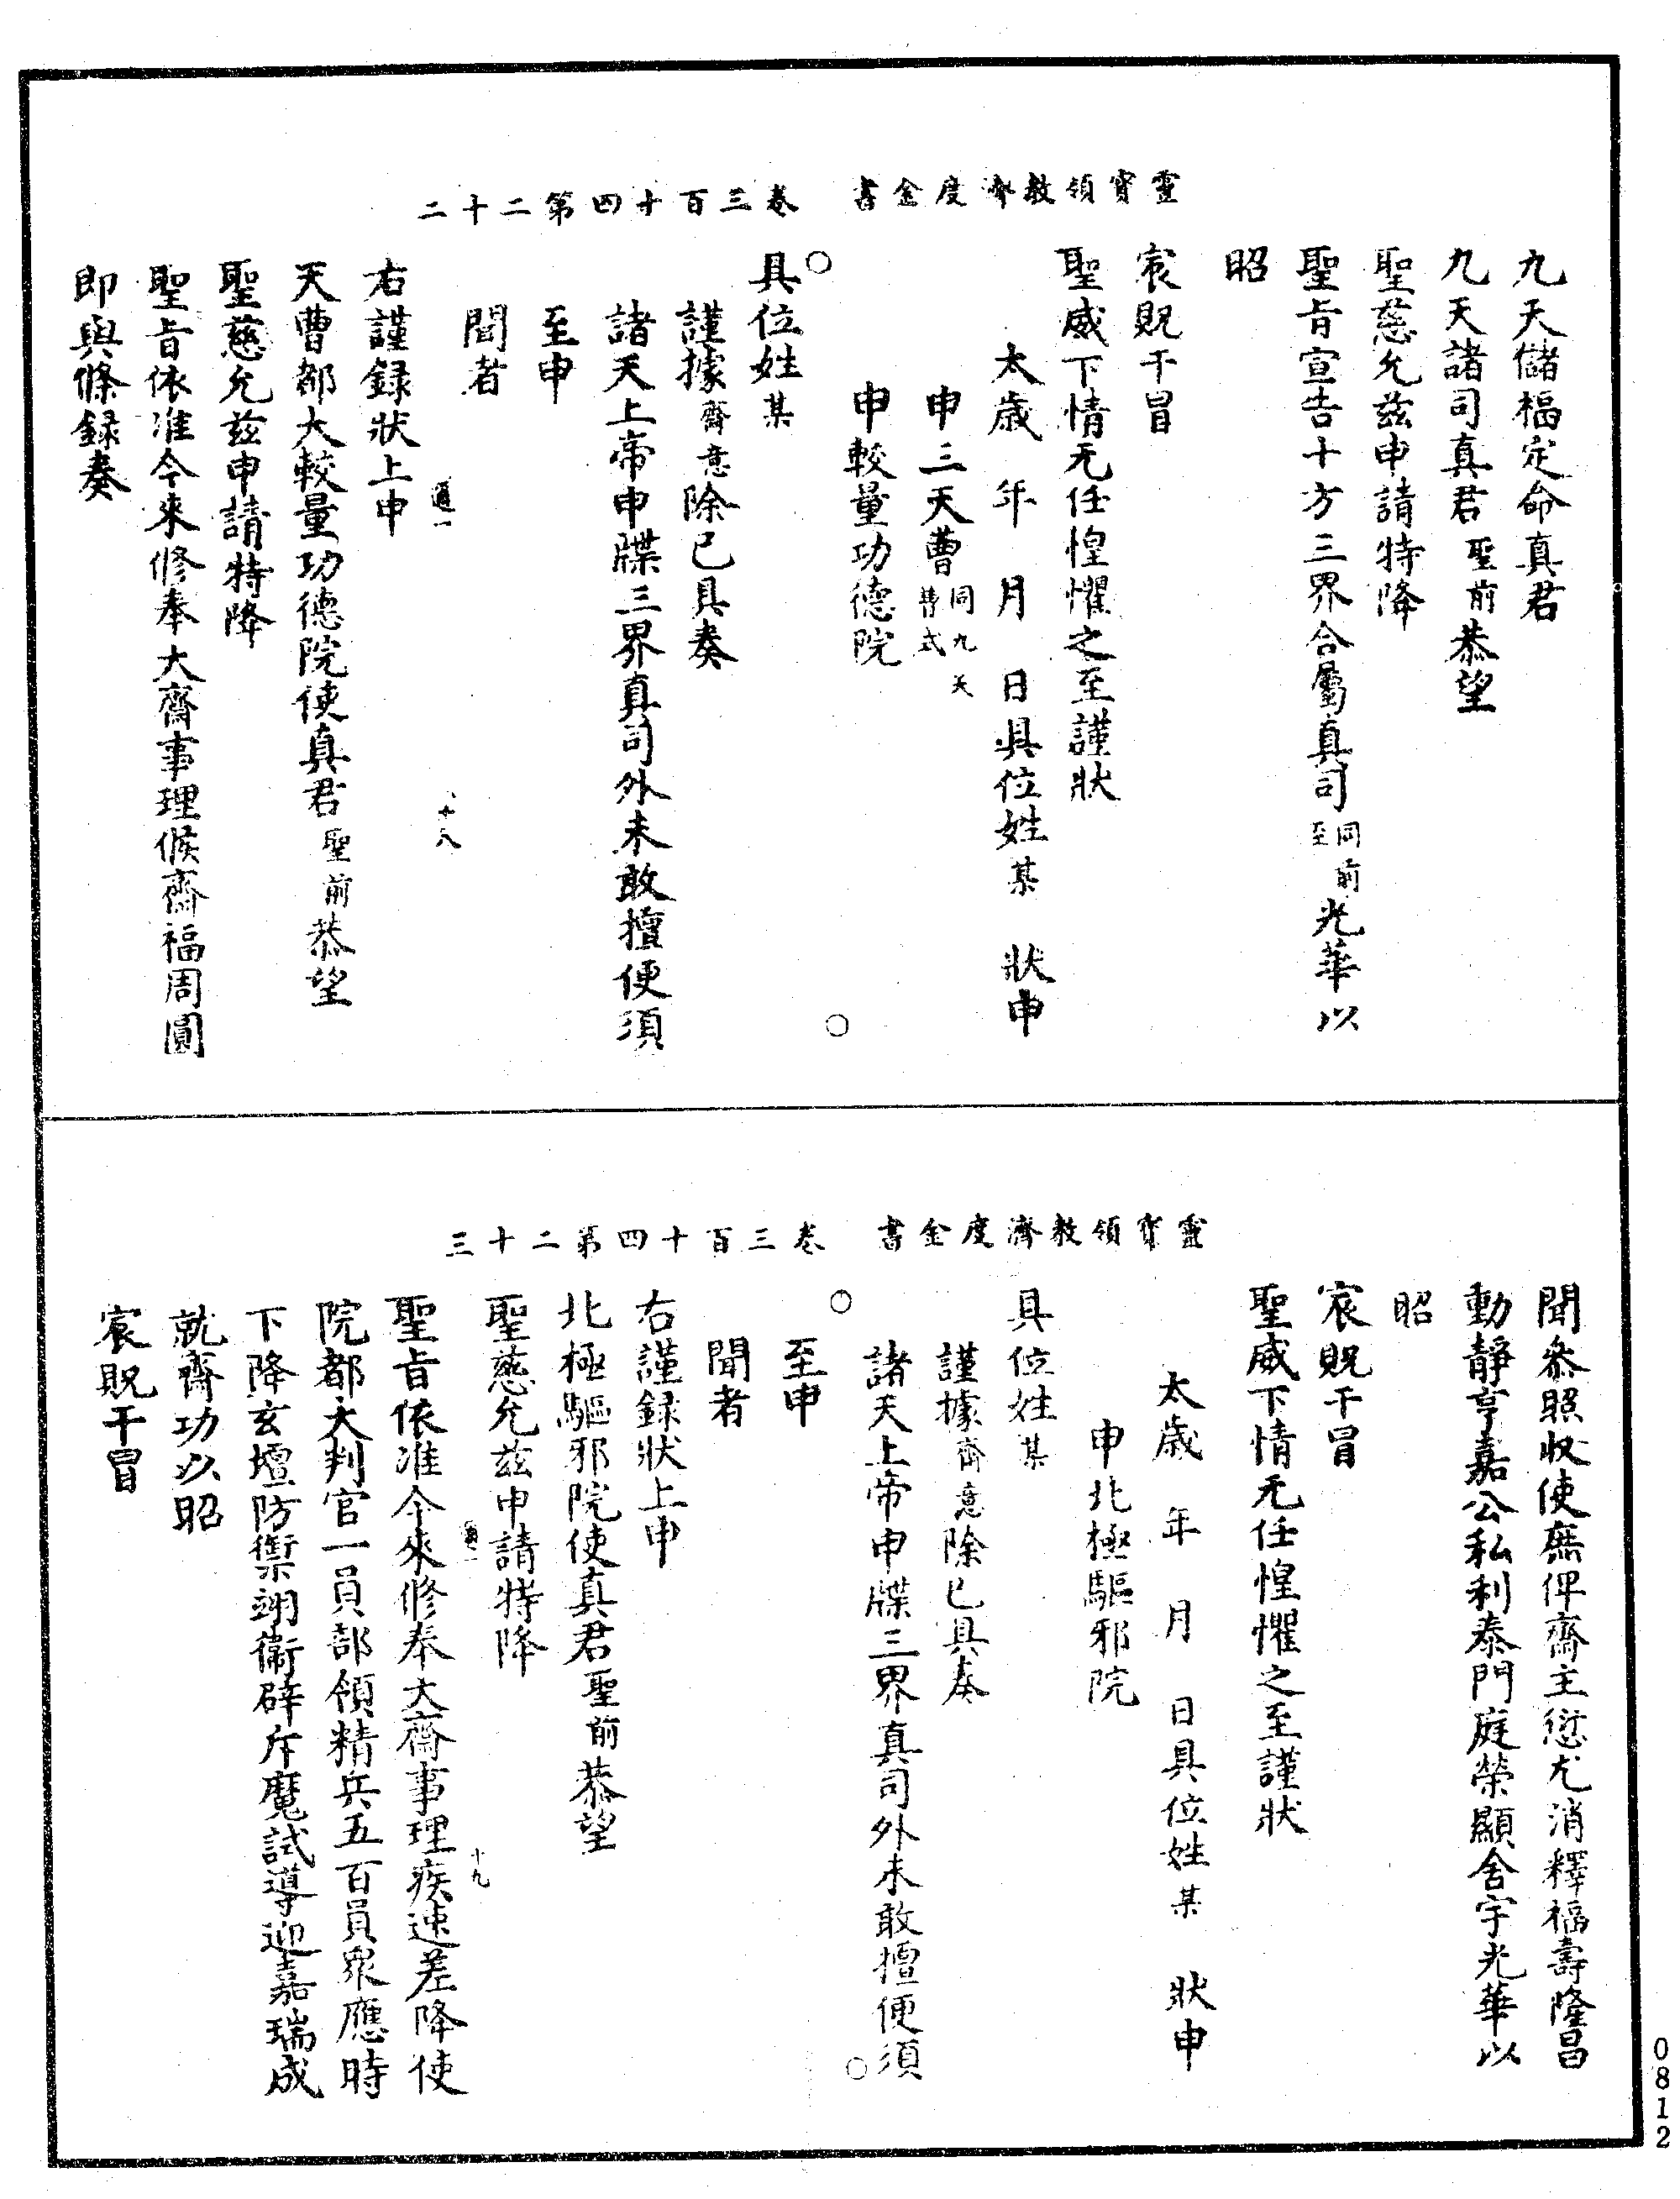 靈寶領教濟度金書　卷三百十四第二十二
九天儲福定命真君
九天諸司真君聖前恭望
聖慈允兹申請特降
聖旨宣告十方三界合屬真司同前至光華以
昭
宸貺干冒
聖威下情无任惶懼之至謹狀
太歲　年　月　日具位姓某　狀申
申三天曹同九天曹式
申較量功德院
具位姓某
謹據齋意除已具奏
諸天上帝申申牒三界真司外未敢擅便須
至申
聞者
通一　十八
右謹録狀上申
天曹都大較量功德院使真君聖前恭望
聖慈允兹申請特降
聖旨依准今來修奉大齋事理候齋福周圓
即與條録奏
靈寶領教濟度金書　卷三百十四第二十三
聞叅照收使庶俾齋主愆尤消釋福壽隆昌
動靜亨嘉公私利泰門庭榮顯舍宇光華以
昭
宸貺干冒
聖威下情无任惶懼之至謹狀
太歲　年　月　日具位姓某　狀申
申北極驅邪院
具位姓某
謹據齋意除已具奏
諸天上帝申申牒三界真司外未敢擅便須
至申
聞者
右謹録狀上申
北極驅邪院使真君聖前恭望
聖慈允兹申請特降
通一　十九
聖旨依准今來修奉大齋事理疾速差降使
院都大判官一員部領精兵五百員衆應時
下降玄壇防禦翊衞辟斥魔試導迎嘉瑞成
就齋功以昭
宸貺干冒
0812